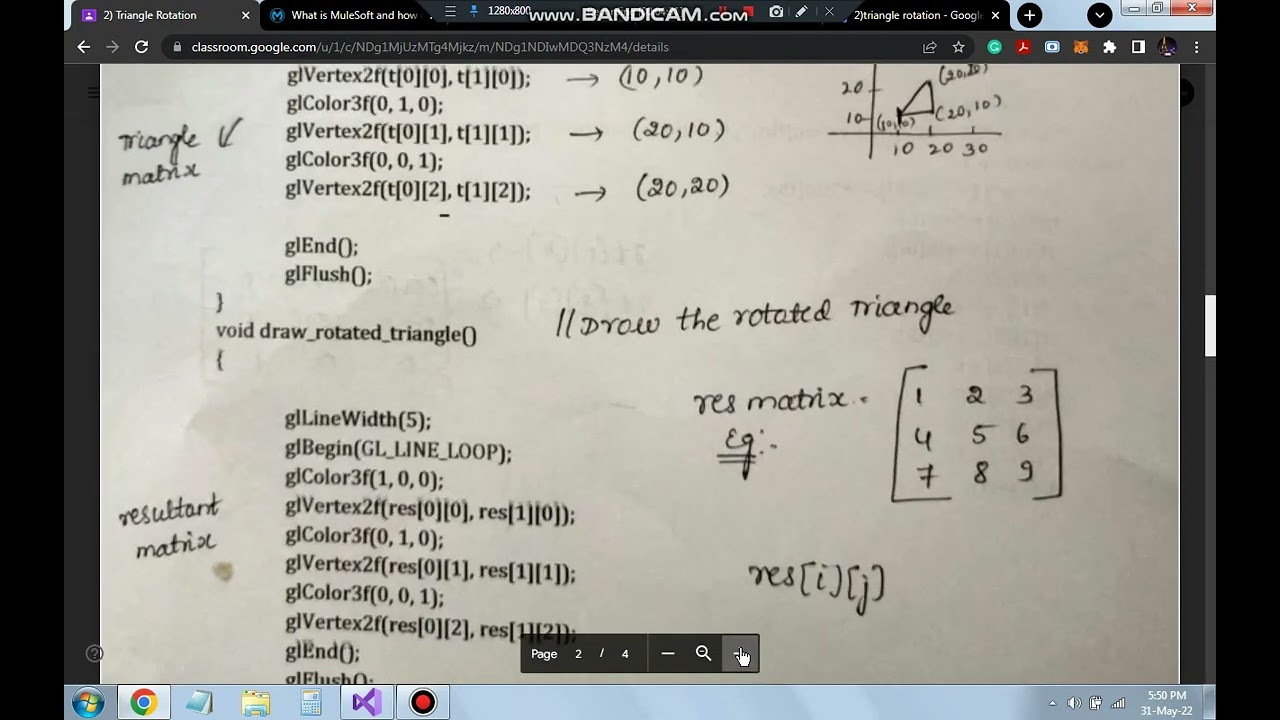 2) Triangle Rotation
What is MuleSoft and how
1280x800
www.BANDICAM.com
2)triangle rotation - Google
classroom.google.com/u/1/c/NDg1MjUzMTg4Mjkz/m/NDg1NDIwMDQ3NzM4/details
glVertex2f(t[0][0], t[1][0]); → (10,10)
glColor3f(0, 1, 0);
glVertex2f(t[0][1], t[1][1]); → (20,10)
glColor3f(0, 0, 1);
glVertex2f(t[0][2], t[1][2]); → (20,20)
Triangle
matrix
20
(20,20)
10
(10,10)
(20,10)
10 20 30
glEnd();
glFlush();
}
void draw_rotated_triangle() //Draw the rotated Triangle
{
glLineWidth(5);
glBegin(GL_LINE_LOOP);
glColor3f(1, 0, 0);
glVertex2f(res[0][0], res[1][0]);
glColor3f(0, 1, 0);
glVertex2f(res[0][1], res[1][1]);
glColor3f(0, 0, 1);
glVertex2f(res[0][2], res[1][2]);
glEnd();
glFlush();
resultant
matrix
res matrix.
Eg:-
1 2 3
4 5 6
7 8 9
res[i][j]
Page 2 / 4
5:50 PM
31-May-22